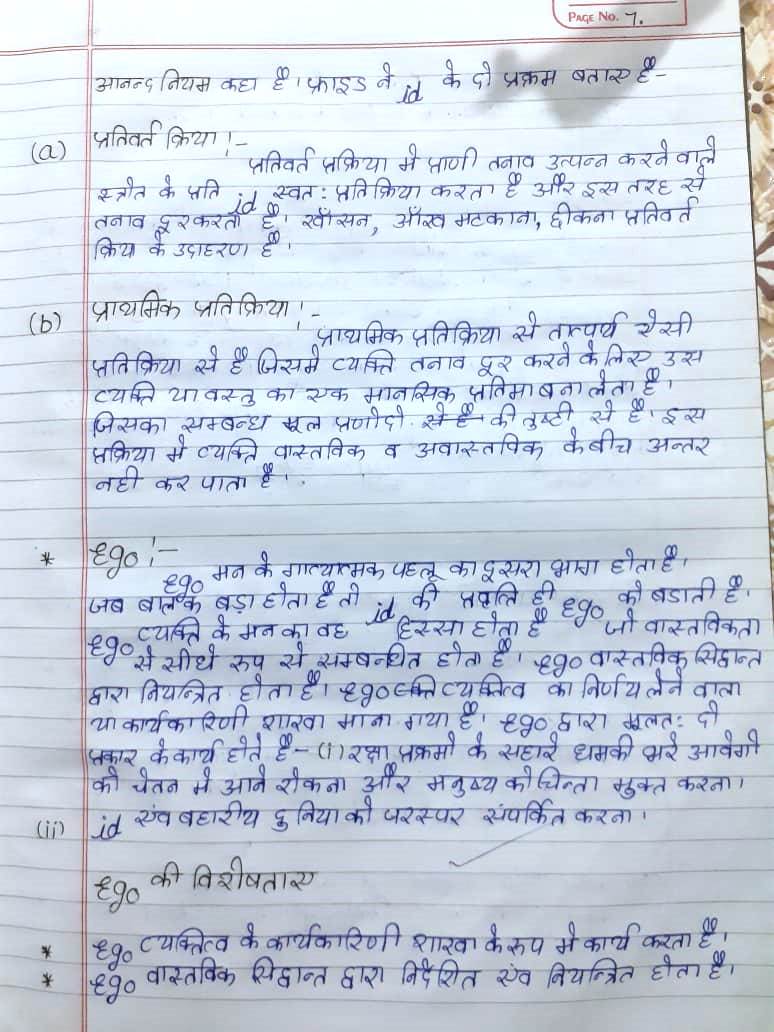 PAGE No. 7.
आनन्द नियम कहा है। फ्राइड ने id के दो प्रक्रम बताए है-
(a) प्रतिवर्त क्रिया :-
प्रतिवर्त प्रक्रिया मे प्राणी तनाव उत्पन्न करने वाले
स्त्रोत के प्रति id स्वत: प्रतिक्रिया करता है और इस तरह से
तनाव दूर करता है। खाँसन, आँख मटकाना, छीकना प्रतिवर्त
क्रिय के उदाहरण है।
(b) प्राथमिक प्रतिक्रिया :-
प्राथमिक प्रतिक्रिया से तात्पर्य ऐसी
प्रतिक्रिया से है जिसमे व्यक्ति तनाव दूर करने के लिए उस
व्यक्ति या वस्तु का एक मानसिक प्रतिमा बना लेता है।
जिसका सम्बन्ध मूल प्रणोदो से है की तुष्टी से है। इस
प्रक्रिया मे व्यक्ति वास्तविक व अवास्तविक के बीच अन्तर
नही कर पाता है।
* Ego :-
Ego मन के गात्यात्मक पहलू का दूसरा भाग होता है।
जब बालक बड़ा होता है तो id की प्रवृति ही Ego को बडाती है।
Ego व्यक्ति के मन का वह हिस्सा होता है जो वास्तविकता
से सीधे रुप से सम्बन्धित होता है। Ego वास्तविक सिद्धान्त
द्वारा नियन्त्रित होता है। Ego व्यक्तित्व का निर्णय लेने वाला
या कार्यकारिणी शाखा माना गया है। Ego द्वारा मूलत: दो
प्रकार के कार्य होते है- (i) रक्षा प्रक्रमो के सहारे धमकी भरे आवेगो
को चेतन मे आने रोकना और मनुष्य को चिन्ता मुक्त करना।
(ii) id एंव बहारीय दुनिया को परस्पर संपर्कित करना।
Ego की विशेषताए
* Ego व्यक्तित्व के कार्यकारिणी शाखा के रुप मे कार्य करता है।
* Ego वास्तविक सिद्धान्त द्वारा निर्देशित एंव नियन्त्रित होता है।